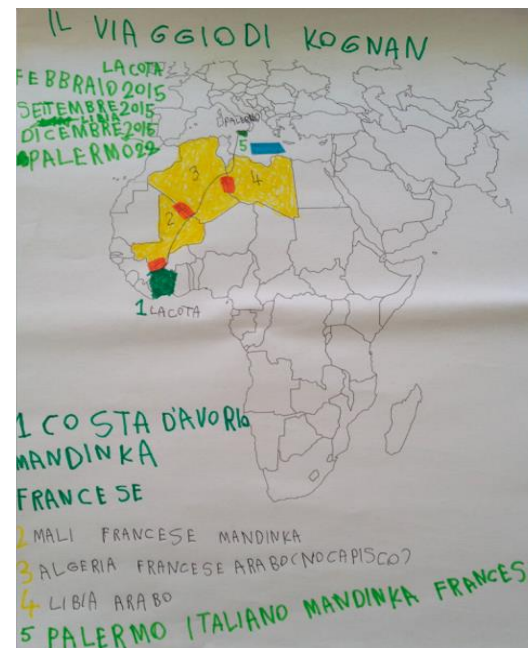 IL VIAGGIO DI KOGNAN
LACOTA
FEBBRAIO 2015
SETTEMBRE 2015
LIBIA
DICEMBRE 2015
PALERMO 29
PALERMO
5
3
4
2
1 LACOTA
1 COSTA D'AVORIO
MANDINKA
FRANCESE
2 MALI FRANCESE MANDINKA
3 ALGERIA FRANCESE ARABO (NO CAPISCO)
4 LIBIA ARABO
5 PALERMO ITALIANO MANDINKA FRANCES